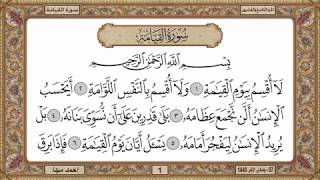 سورة القيامة
سُورَةُ القِيَامَةِ
بِسْمِ اللَّهِ الرَّحْمَٰنِ الرَّحِيمِ
لَا أُقْسِمُ بِيَوْمِ الْقِيَٰمَةِ ١ وَلَا أُقْسِمُ بِالنَّفْسِ اللَّوَّامَةِ ٢ أَيَحْسَبُ
الْإِنسَٰنُ أَلَّن نَّجْمَعَ عِظَامَهُ ٣ بَلَىٰ قَٰدِرِينَ عَلَىٰ أَن نُّسَوِّيَ بَنَانَهُ ٤ بَلْ
يُرِيدُ الْإِنسَٰنُ لِيَفْجُرَ أَمَامَهُ ٥ يَسْـَٔلُ أَيَّانَ يَوْمُ الْقِيَٰمَةِ ٦ فَإِذَا بَرِقَ
1